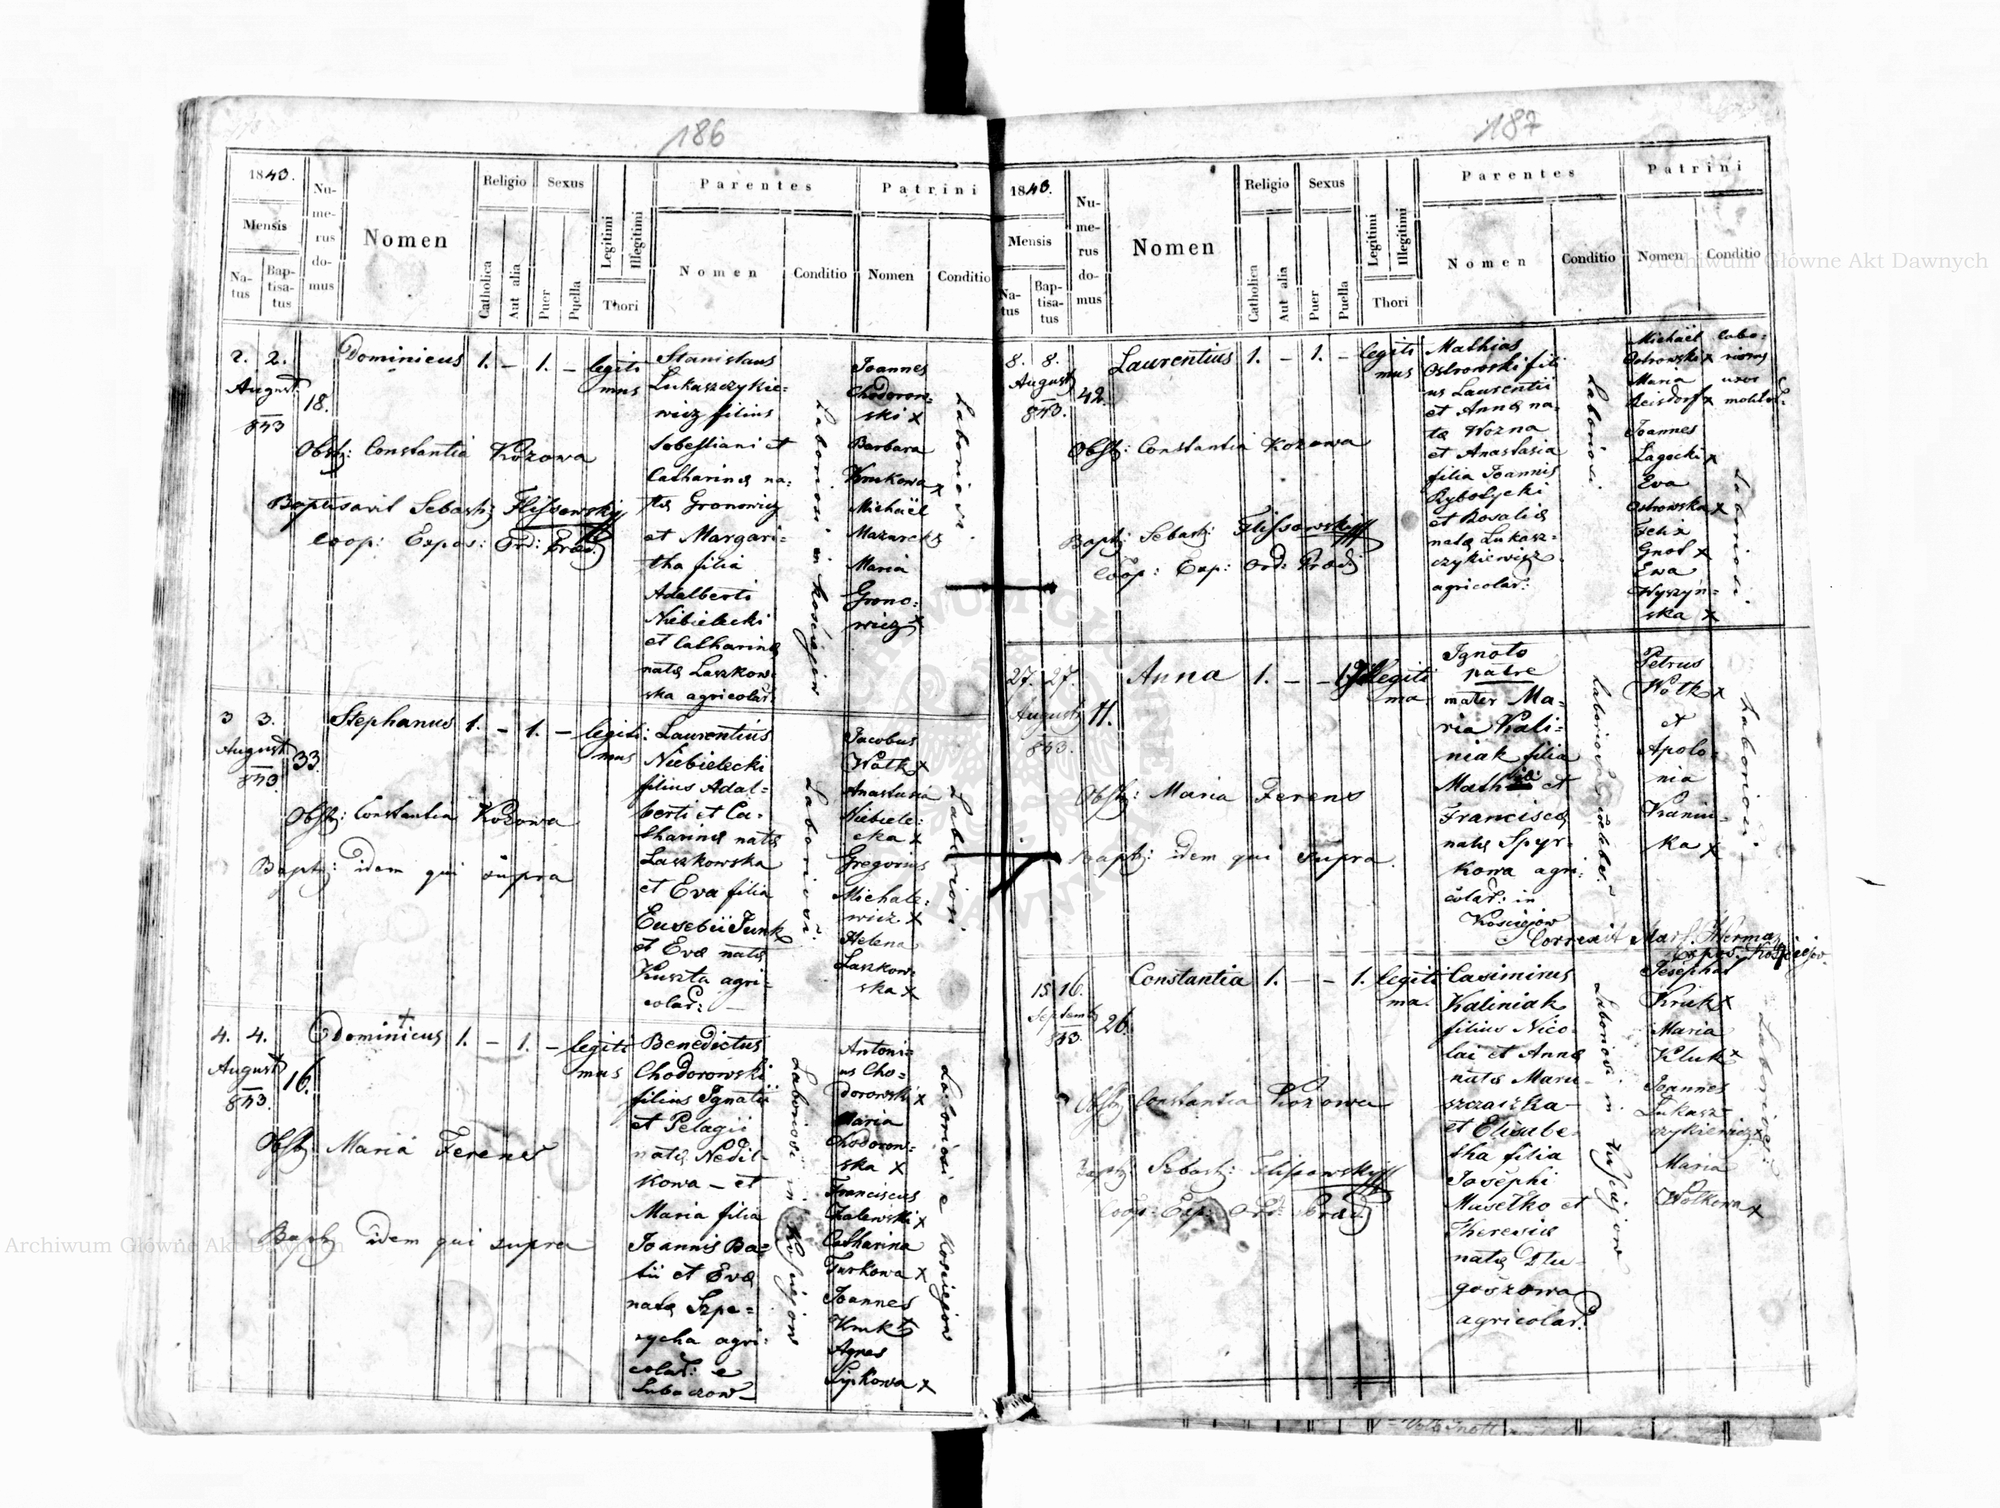 186
1843.
Mensis
Na-
tus
Bap-
tisa-
tus
Nu-
me-
rus
do-
mus
Nomen
Religio
Catholica
Aut alia
Sexus
Puer
Puella
Legitimi
Illegitimi
Thori
Parentes
Nomen
Conditio
Patrini
Nomen
Conditio
2. 2.
August
843
18.
Dominicus 1. – 1. – legiti
mus
Obst: Constantia Kozowa
Baptisavit Sebast: Flissowski
Coop: Expos: Ord: Praed:
Stanislaus
Lukaszczykie=
wicz filius
Sebastiani et
Catharinæ na=
tæ Gronowicz
et Margari=
tha filia
Adalberti
Niebielecki
et Catharinæ
natæ Laszkow
ska agricolar:
Laboriosi in Kościejów
Joannes
Chodorow=
ski x
Barbara
Krukowa x
Michäel
Mazurek x
Maria
Grono=
wicz x
Laboriosi
3 3.
August
843
33
Stephanus 1. – 1. – legiti:
mus
Obst: Constantia Kozowa
Bapt: idem qui supra
Laurentius
Niebielecki
filius Adal=
berti et Ca=
tharinæ natæ
Laszkowska
et Eva filia
Eusebii Funk
et Evæ natæ
Kuszta agri=
colar: –
Laboriosi
Jacobus
Wołk x
Anastasia
Niebiele=
cka x
Gregorius
Michale:
wicz x
Helena
Laszkow=
ska x
Laboriosi
4. 4.
August
843.
16.
Dominicus 1. – 1. – legiti
mus
Obst: Maria Ferens
Bapt: idem qui supra
Benedictus
Chodorowski
filius Ignatii
et Pelagii
natæ Nedil=
kowa – et
Maria filia
Joannis Ba=
tii et Evæ
natæ Szpe=
rycha agri:
colar: e
Lubaczow
Laboriosi in Kościejów
Antoni=
us Cho=
dorowski x
Maria
Chodorow=
ska x
Franciscus
Zalewski x
Catharina
Turkowa x
Joannes
Kruk x
Agnes
Lipkowa x
Laboriosi e Kosciejow
187
1843.
Mensis
Na-
tus
Bap-
tisa-
tus
Nu-
me-
rus
do-
mus
Nomen
Religio
Catholica
Aut alia
Sexus
Puer
Puella
Legitimi
Illegitimi
Thori
Parentes
Nomen
Conditio
Patrini
Nomen
Conditio
8. 8.
August
843.
42.
Laurentius 1. – 1. – legiti
mus
Obst: Constantia Kozowa
Bapt: Sebast: Flissowski
Coop: Exp: Ord: Praed:
Mathias
Ostrowski fili
us Laurentii
et Annæ na=
tæ Wozna
et Anastasia
filia Joannis
Rybotycki
et Rosaliæ
natæ Lukasz=
czykiewicz
agricolar:
Laboriosi
Michäel labo=
Ostrowski x riosus
Maria uxor
Reisdorf x molitor:
Joannes
Lagocki x
Eva
Ostrowska x
Felix
Gnot x
Ewa
Wyszyń=
ska x
Laboriosi
27. 27.
August
843.
11.
Anna 1. – – 1. Illegiti
ma
Obst: Maria Ferens
Bapt: idem qui supra.
Ignoto
patre
mater Ma=
ria Kali=
niak filia
et
Franciscæ
natæ Spyr=
kowa agri:
colar: in
Kościejów
Petrus
Wołk x
et
Apolo=
nia
ka x
Laboriosi
Correxit
15 16.
Septemb
843.
26.
Constantia 1. – – 1. legiti
ma.
Obst: Constantia Kozowa
Bapt: Sebast: Flissowski
Coop: Exp: Ord: Praed:
Casimirus
Kaliniak
filius Nico
lai et Annæ
natæ Maru=
szczaszka
et Elisabe=
tha filia
Josephi
Musełko et
Theresiæ
natæ Dłu=
goszowa
agricolar:
Laboriosi in Kościejów
Josephus
Kruk x
Maria
Kluk x
Joannes
Lukasz=
czykiewicz x
Maria
Wołkowa x
Laboriosi
Archiwum Główne Akt Dawnych
Archiwum Główne Akt Dawnych